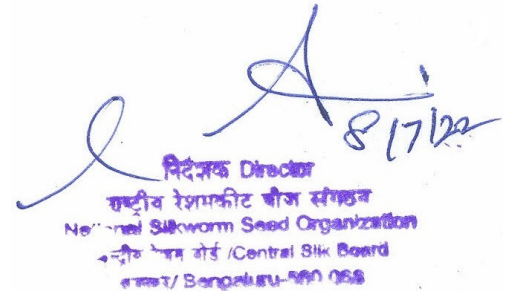 8/7/22
निदेशक Director
राष्ट्रीय रेशमकीट बीज संगठन
National Silkworm Seed Organization
बोर्ड /Central Silk Board
/ Bengaluru-560 068